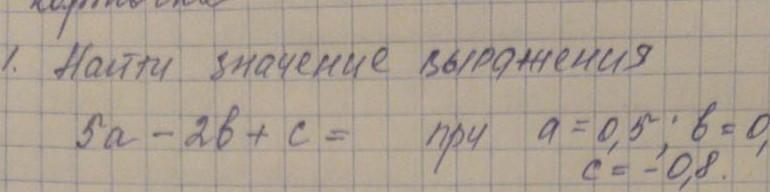 1. Найти значение выражения
5a - 2b + c = при a = 0,5; b = 0,
c = -0,8.